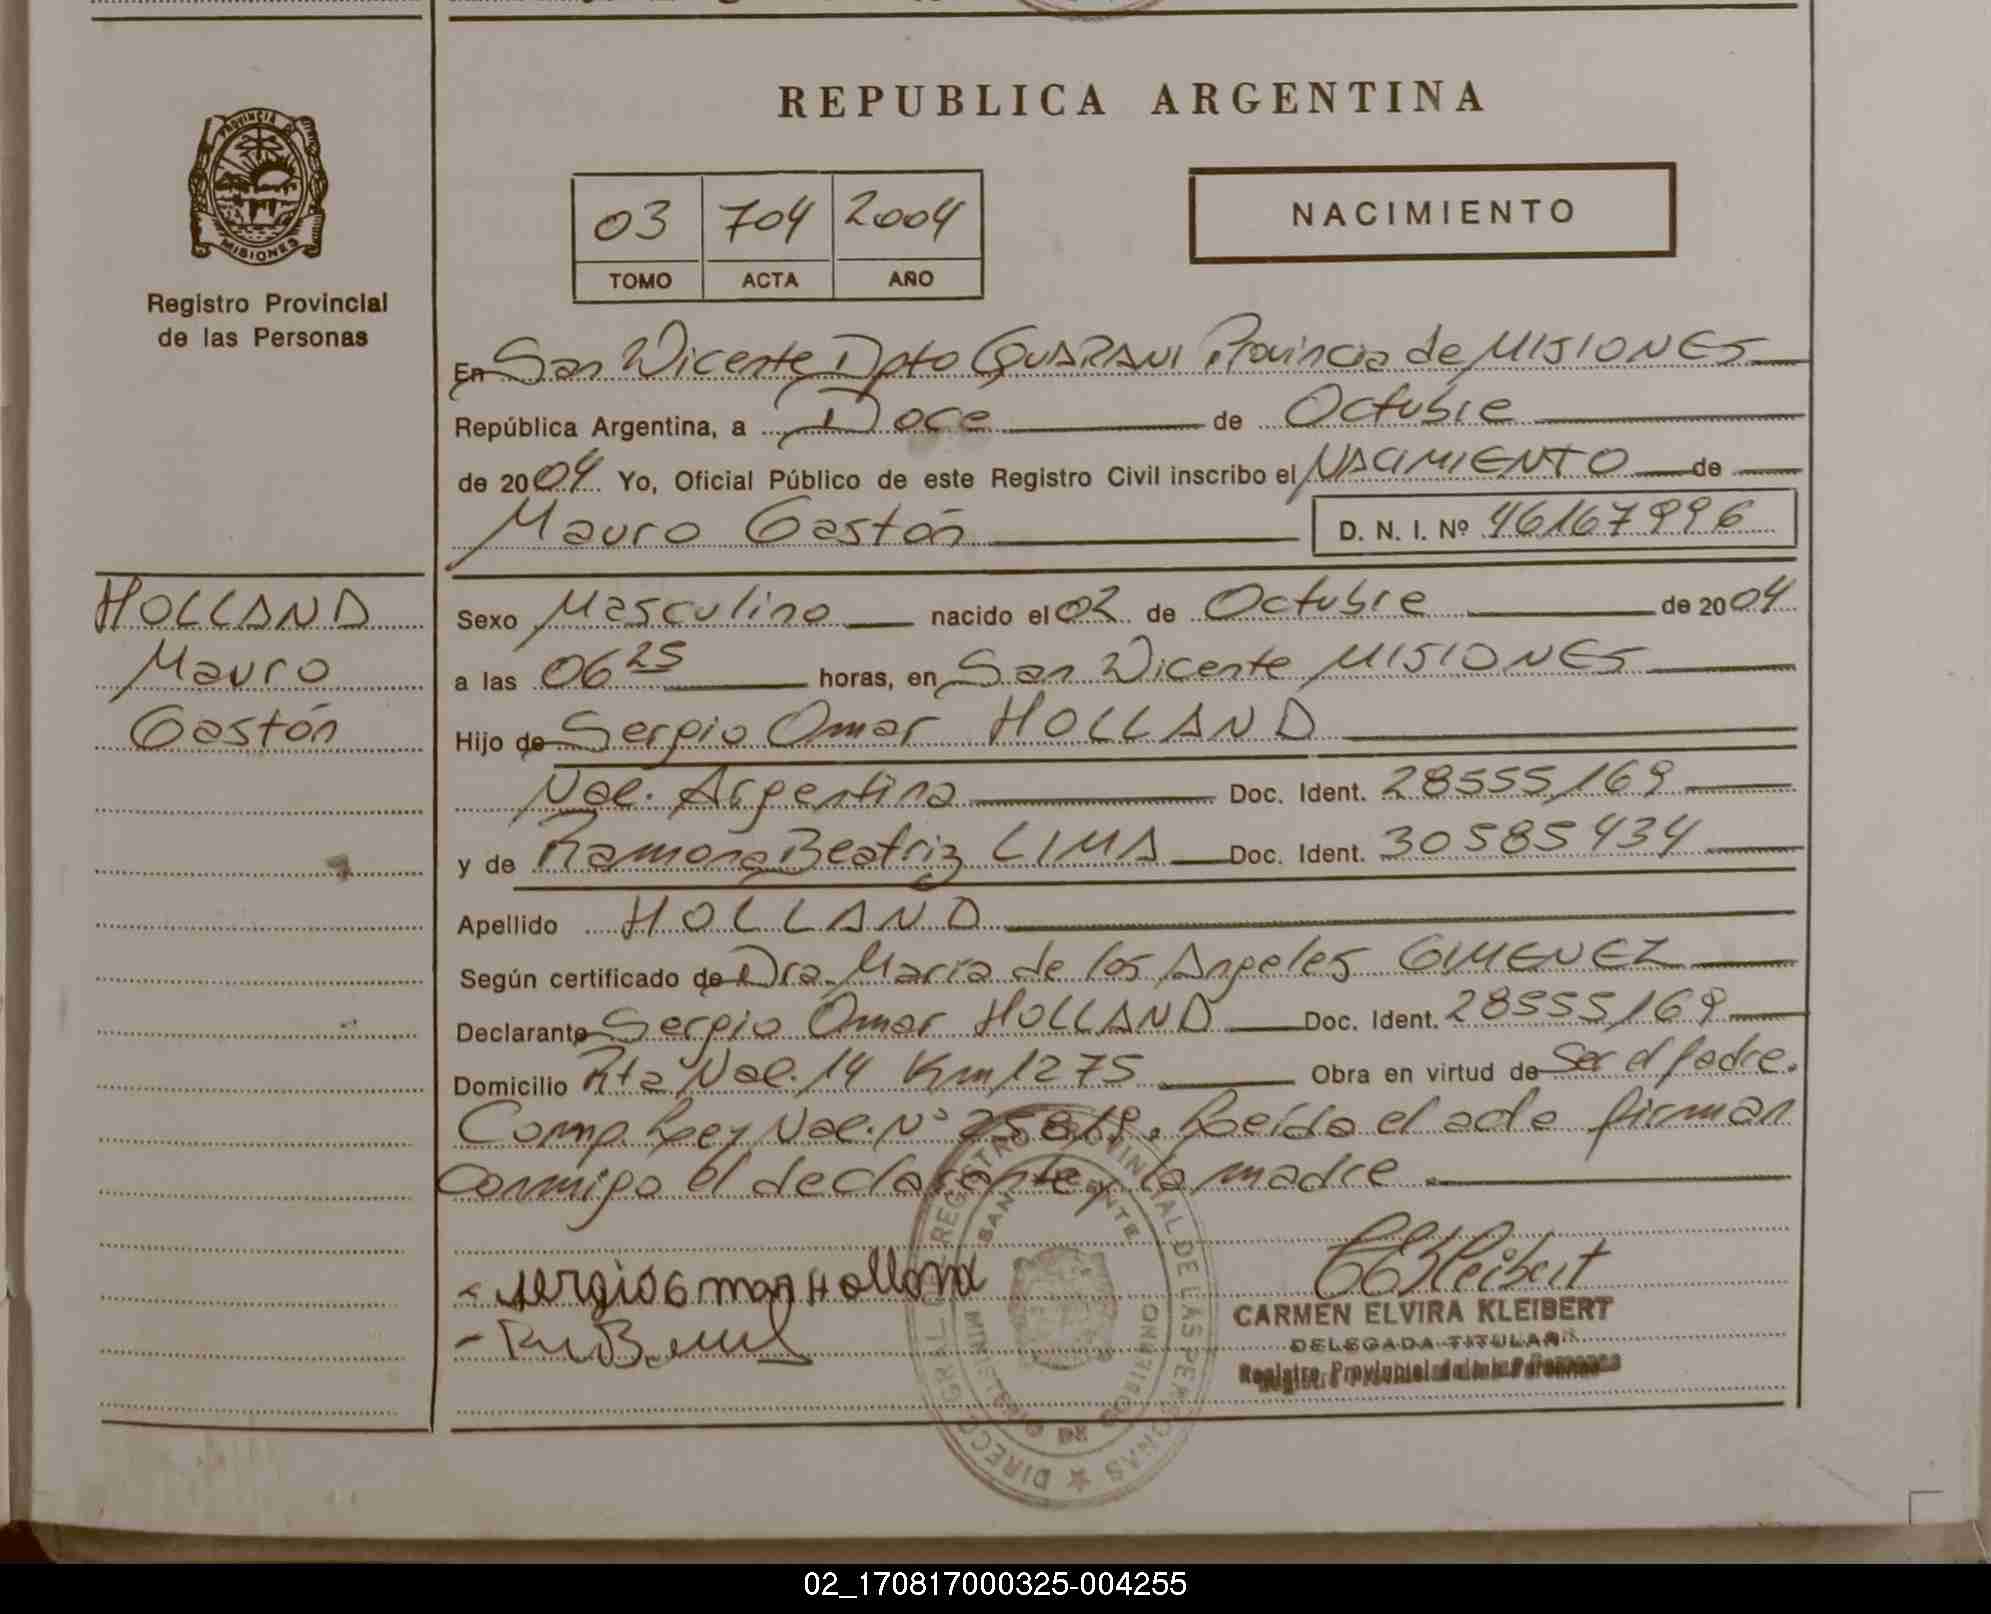 REPUBLICA ARGENTINA
PROVINCIA DE
MISIONES
Registro Provincial
de las Personas
03 704 2004
TOMO ACTA AÑO
NACIMIENTO
En San Vicente Dpto GUARANI Provincia de MISIONES
República Argentina, a Doce de Octubre
de 2004 Yo, Oficial Público de este Registro Civil inscribo el NACIMIENTO de
Mauro Gastón D. N. I. Nº 46167996
HOLLAND
Mauro
Gastón
Sexo Masculino nacido el 02 de Octubre de 2004
a las 06 25 horas, en San Vicente MISIONES
Hijo de Sergio Omar HOLLAND
Nac. Argentina Doc. Ident. 28555169
y de Ramona Beatriz LIMA Doc. Ident. 30585434
Apellido HOLLAND
Según certificado de Dra. María de los Angeles GIMENEZ
Declarante Sergio Omar HOLLAND Doc. Ident. 28555169
Domicilio Rta Nac. 14 Km 1275 Obra en virtud de Ser el padre.
Comp. Ley Nac. Nº 25819. Leída el acta firman
conmigo el declarante y la madre
Sergio Omar Holland
CEKleibert
CARMEN ELVIRA KLEIBERT
DELEGADA TITULAR
Registro Provincial de las Personas
DIRECC. GRAL. REGISTRO PROVINCIAL DE LAS PERSONAS
SAN VICENTE
MINISTERIO DE GOBIERNO
02_170817000325-004255